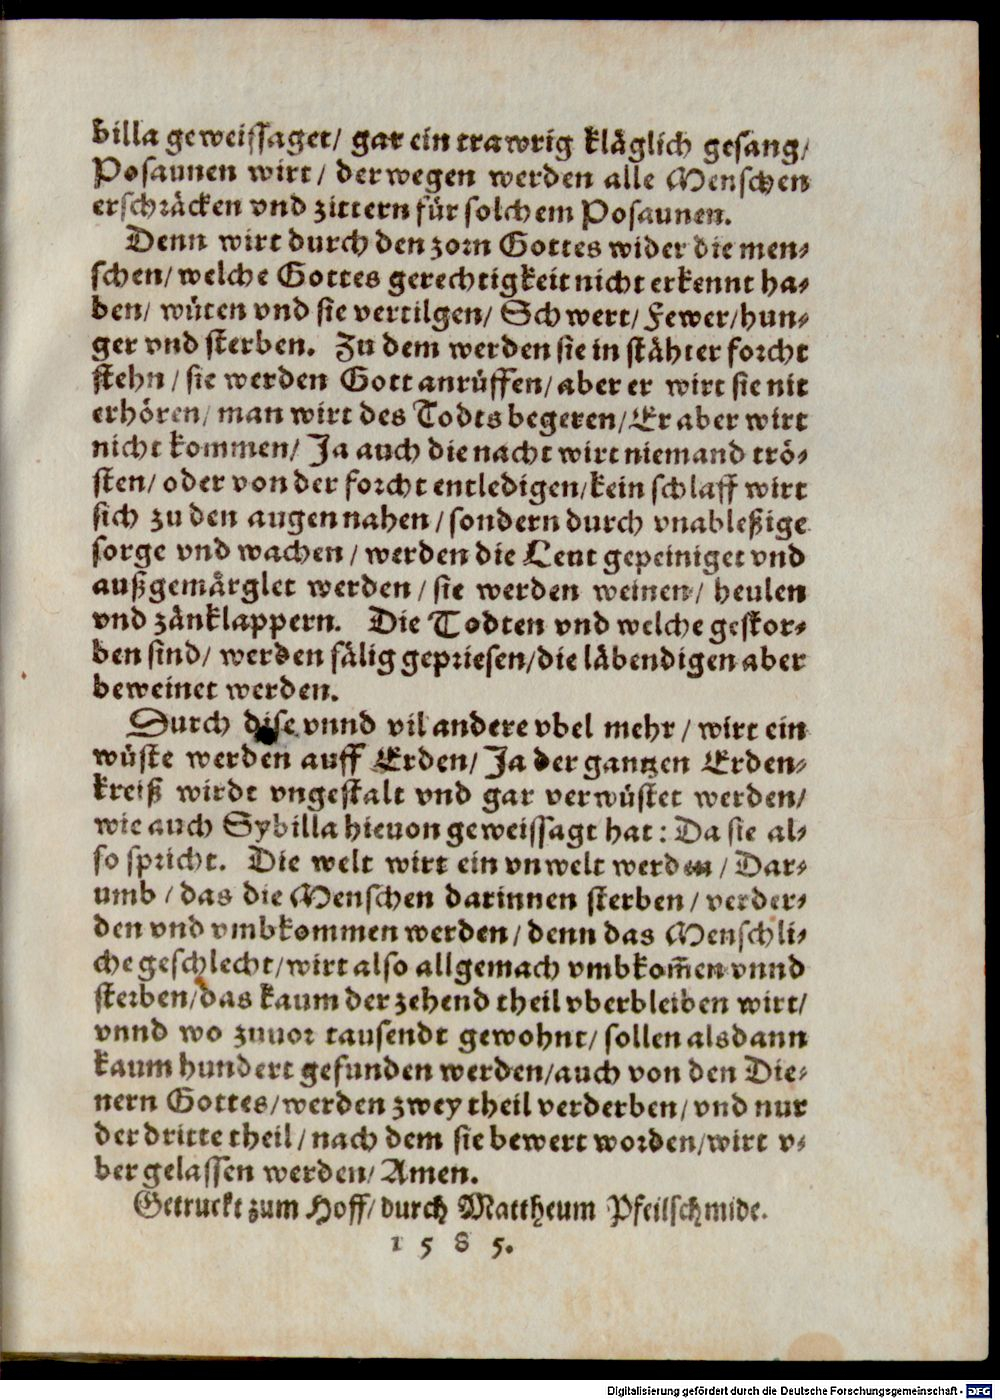 billa geweissaget/ gar ein trawrig kläglich gesang/
Posaunen wirt/ derwegen werden alle Menschen
erschräcken vnd zittern für solchem Posaunen.
Denn wirt durch den zorn Gottes wider die men-
schen/ welche Gottes gerechtigkeit nicht erkennt ha-
ben/ wüten vnd sie vertilgen/ Schwert/ Fewer/ hun-
ger vnd sterben. Zu dem werden sie in stähter forcht
stehn/ sie werden Gott anrüffen/ aber er wirt sie nit
erhören/ man wirt des Todts begeren/ Er aber wirt
nicht kommen/ Ja auch die nacht wirt niemand trö-
sten/ oder von der forcht entledigen/ kein schlaff wirt
sich zu den augen nahen/ sondern durch vnableßige
sorge vnd wachen/ werden die Leut gepeiniget vnd
außgemärglet werden/ sie werden weinen/ heulen
vnd zänklappern. Die Todten vnd welche gestor-
ben sind/ werden sälig gepriesen/ die läbendigen aber
beweinet werden.
Durch dise vnnd vil andere vbel mehr/ wirt ein
wüste werden auff Erden/ Ja der gantzen Erden-
kreiß wirdt vngestalt vnd gar verwüstet werden/
wie auch Sybilla hieuon geweissagt hat: Da sie al-
so spricht. Die welt wirt ein vnwelt werden/ Dar-
umb/ das die Menschen darinnen sterben/ verder-
den vnd vmbkommen werden/ denn das Menschli-
che geschlecht/ wirt also allgemach vmbkom̃en vnnd
sterben/ das kaum der zehend theil vberbleiben wirt/
vnnd wo zuuor tausendt gewohnt/ sollen alsdann
kaum hundert gefunden werden/ auch von den Die-
nern Gottes/ werden zwey theil verderben/ vnd nur
der dritte theil/ nach dem sie bewert worden/ wirt v-
ber gelassen werden/ Amen.
Getruckt zum Hoff/ durch Mattheum Pfeilschmidt.
1585.
Digitalisierung gefördert durch die Deutsche Forschungsgemeinschaft - DFG